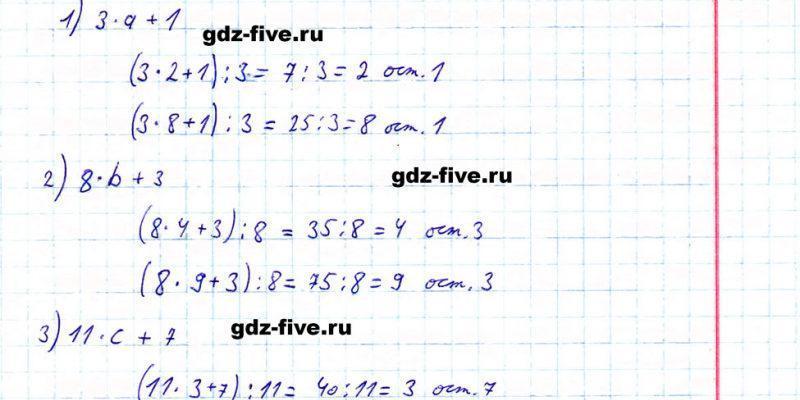 1) 3·a + 1
gdz-five.ru
(3·2+1):3= 7:3= 2 ост. 1
(3·8+1):3 = 25:3=8 ост. 1
2) 8·b + 3
gdz-five.ru
(8·4+3):8 = 35:8=4 ост. 3
(8·9+3):8= 75:8=9 ост. 3
3) 11·c + 7
gdz-five.ru
(11·3+7):11= 40:11= 3 ост. 7